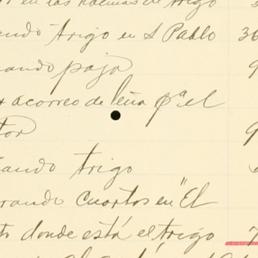 en las trigo
ando trigo en S. Pablo 3
ando paja 9
acorreo de leña pa el
tor 9
ando trigo
rando cuartos en "El
donde está el trigo 7